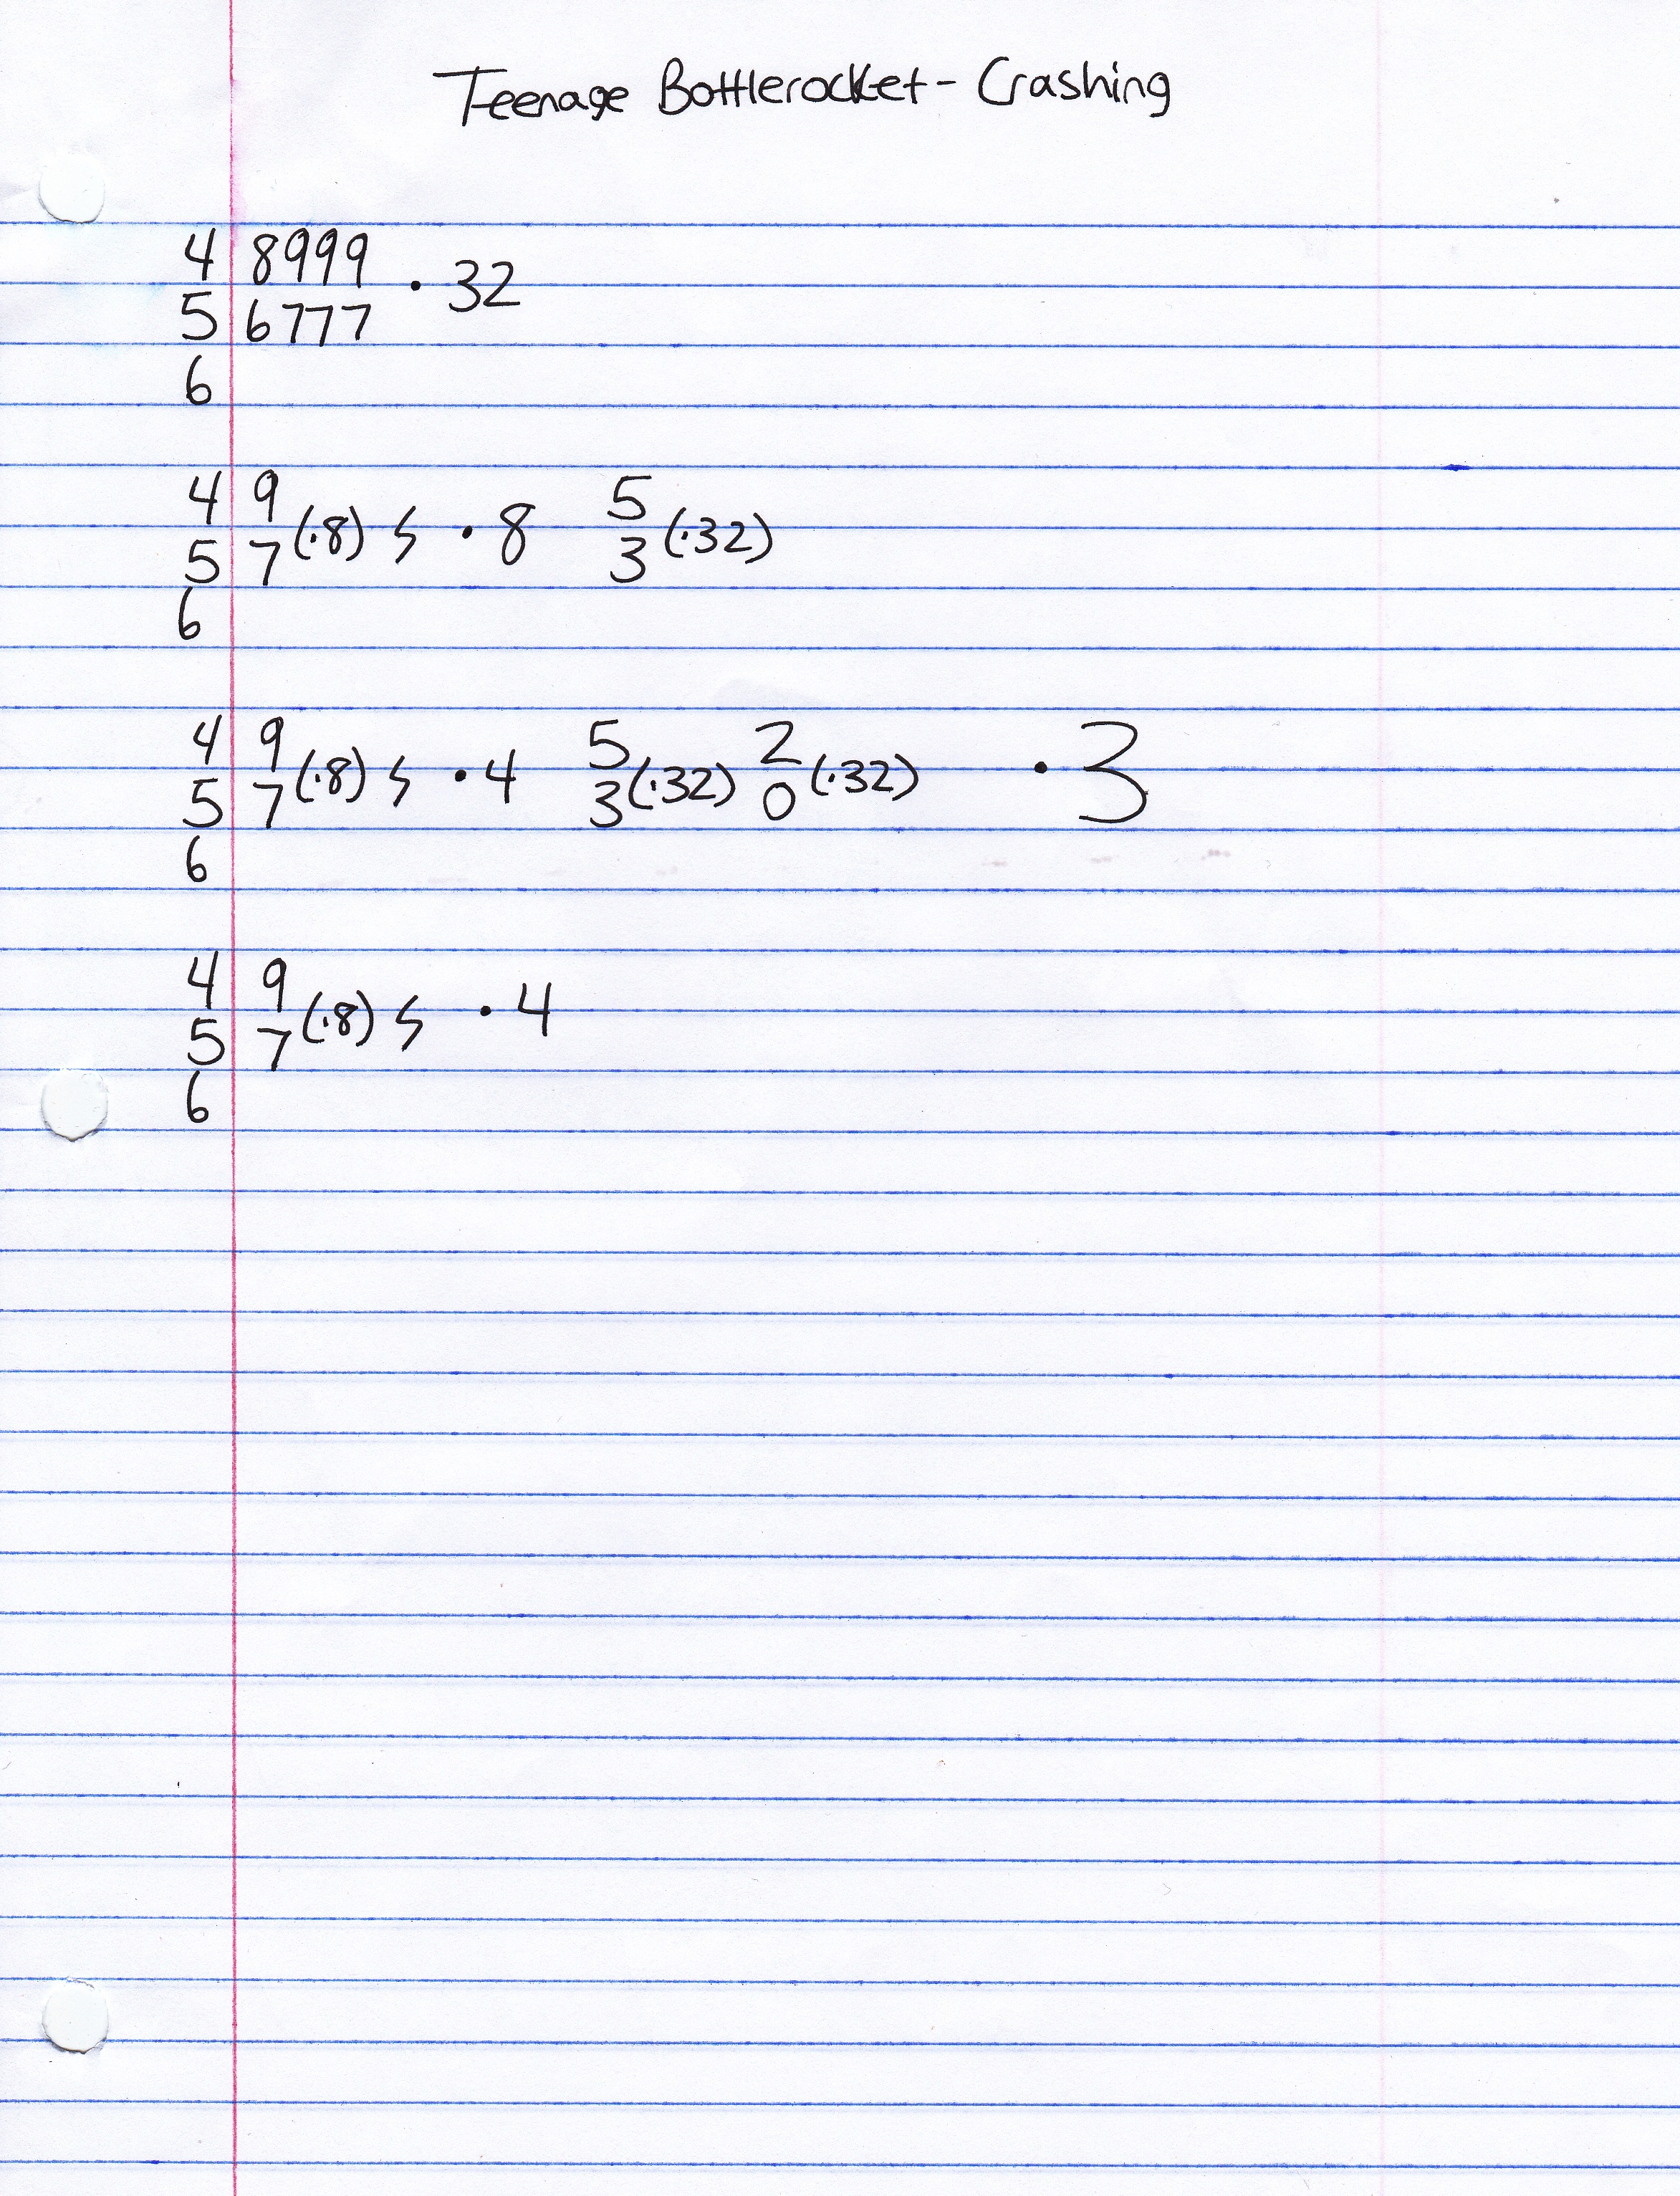 Teenage Bottlerocket - Crashing
4 8999
5 6777 · 32
6
4 9
5 7 (·8) ϟ · 8 5 3 (·32)
6
4 9
5 7 (·8) ϟ · 4 5 3 (·32) 2 0 (·32) · 3
6
4 9
5 7 (·8) ϟ · 4
6